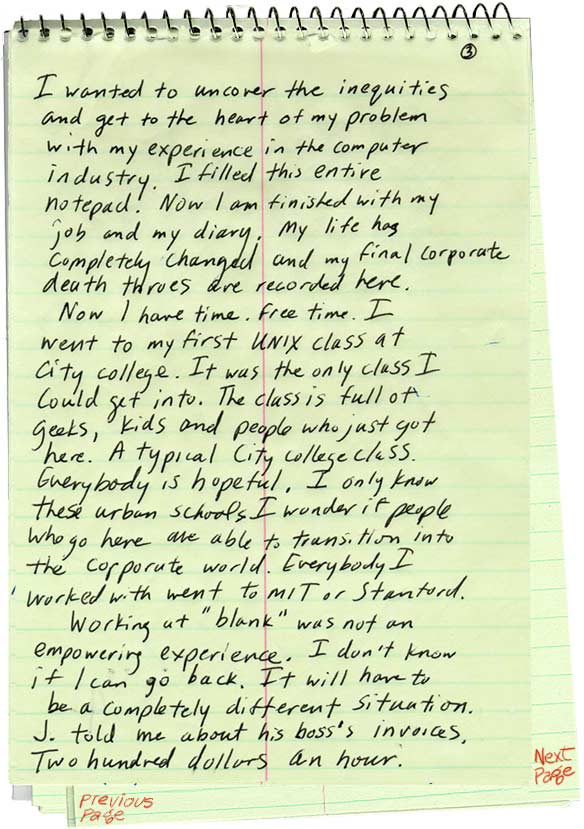 3
I wanted to uncover the inequities
and get to the heart of my problem
with my experience in the computer
industry. I filled this entire
notepad. Now I am finished with my
job and my diary. My life has
completely changed and my final corporate
death throes are recorded here.
Now I have time. Free time. I
went to my first UNIX class at
City college. It was the only class I
could get into. The class is full of
geeks, kids and people who just got
here. A typical City college class.
Everybody is hopeful. I only know
these urban schools I wonder if people
who go here are able to transition into
the corporate world. Everybody I
worked with went to MIT or Stanford.
Working at "blank" was not an
empowering experience. I don't know
if I can go back. It will have to
be a completely different situation.
J. told me about his boss's invoices.
Two hundred dollars an hour.
Next
Page
Previous
Page